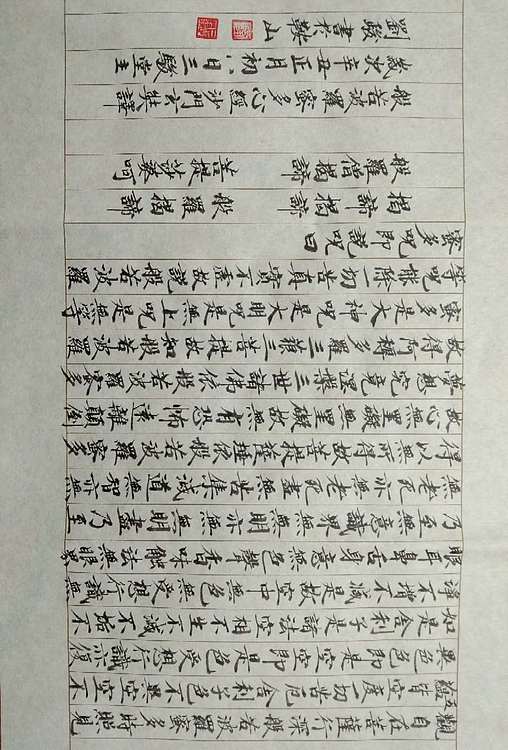 觀自在菩薩行深般若波羅蜜多時照見
五蘊皆空度一切苦厄舍利子色不異空空不
異色色即是空空即是色受想行識亦復
如是舍利子是諸法空相不生不滅不垢不
淨不增不減是故空中無色無受想行識無
眼耳鼻舌身意無色聲香味觸法無眼界
乃至無意識界無無明亦無無明盡乃至
無老死亦無老死盡無苦集滅道無智亦無
得以無所得故菩提薩埵依般若波羅蜜多
故心無罣礙無罣礙故無有恐怖遠離顛倒
夢想究竟涅槃三世諸佛依般若波羅蜜多
故得阿耨多羅三藐三菩提故知般若波羅
蜜多是大神咒是大明咒是無上咒是無等
等咒能除一切苦真實不虛故說般若波羅
蜜多咒即說咒曰
揭諦揭諦 般羅揭諦
般羅僧揭諦 菩提莎婆訶
般若波羅蜜多心經沙門玄奘譯
歲次辛丑正月初八日三駿堂主
劉駿書於鞍山